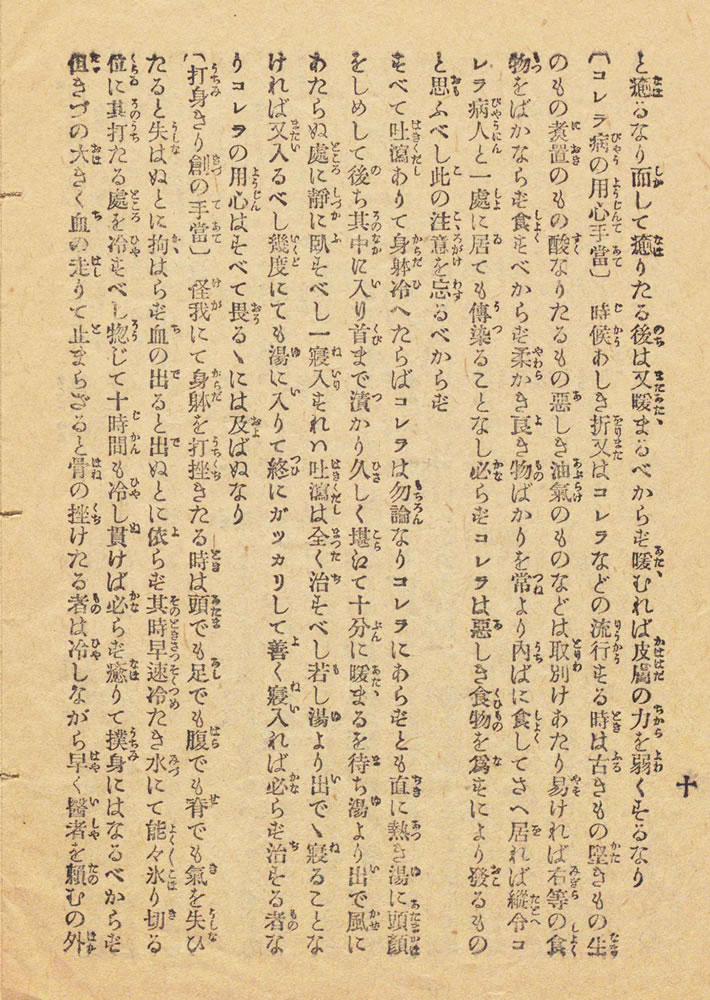 十
と癒るなり而して癒りたる後は又暖まるべからず暖むれば皮膚の力を弱くするなり
〔コレラ病の用心手當〕 時候あしき折又はコレラなどの流行する時は古きもの堅きもの生
のもの煑置のもの酸なりたるもの惡しき油氣のものなどは取別けあたり易ければ右等の食
物をばかならず食すべからず柔かき良き物ばかりを常より內ばに食してさへ居れば縱令コ
レラ病人と一處に居ても傳染ることなし必らずコレラは惡しき食物を爲すにより發るもの
と思ふべし此の注意を忘るべからず
すべて吐瀉ありて身躰冷へたらばコレラは勿論なりコレラにあらずとも直に熱き湯に頭顏
をしめして後ち其中に入り首まで漬かり久しく堪江て十分に暖まるを待ち湯より出で風に
あたらぬ處に靜に臥すべし一寢入すれハ吐瀉は全く治すべし若し湯より出でゝ寢ることな
ければ又入るべし幾度にても湯に入りて終にガッカリして善く寢入れば必らず治する者な
りコレラの用心はすべて畏るゝには及ばぬなり
〔打身きり創の手當〕 怪我にて身躰を打挫きたる時は頭でも足でも腹でも脊でも氣を失ひ
たると失はぬとに拘はらず血の出ると出ぬとに依らず其時早速冷たき水にて能々氷り切る
位に其打たる處を冷すべし惣じて十時間も冷し貫けば必らず癒りて撲身にはなるべからず
但きづの大きく血の走りて止まらざると骨の挫けたる者は冷しながら早く醫者を賴むの外